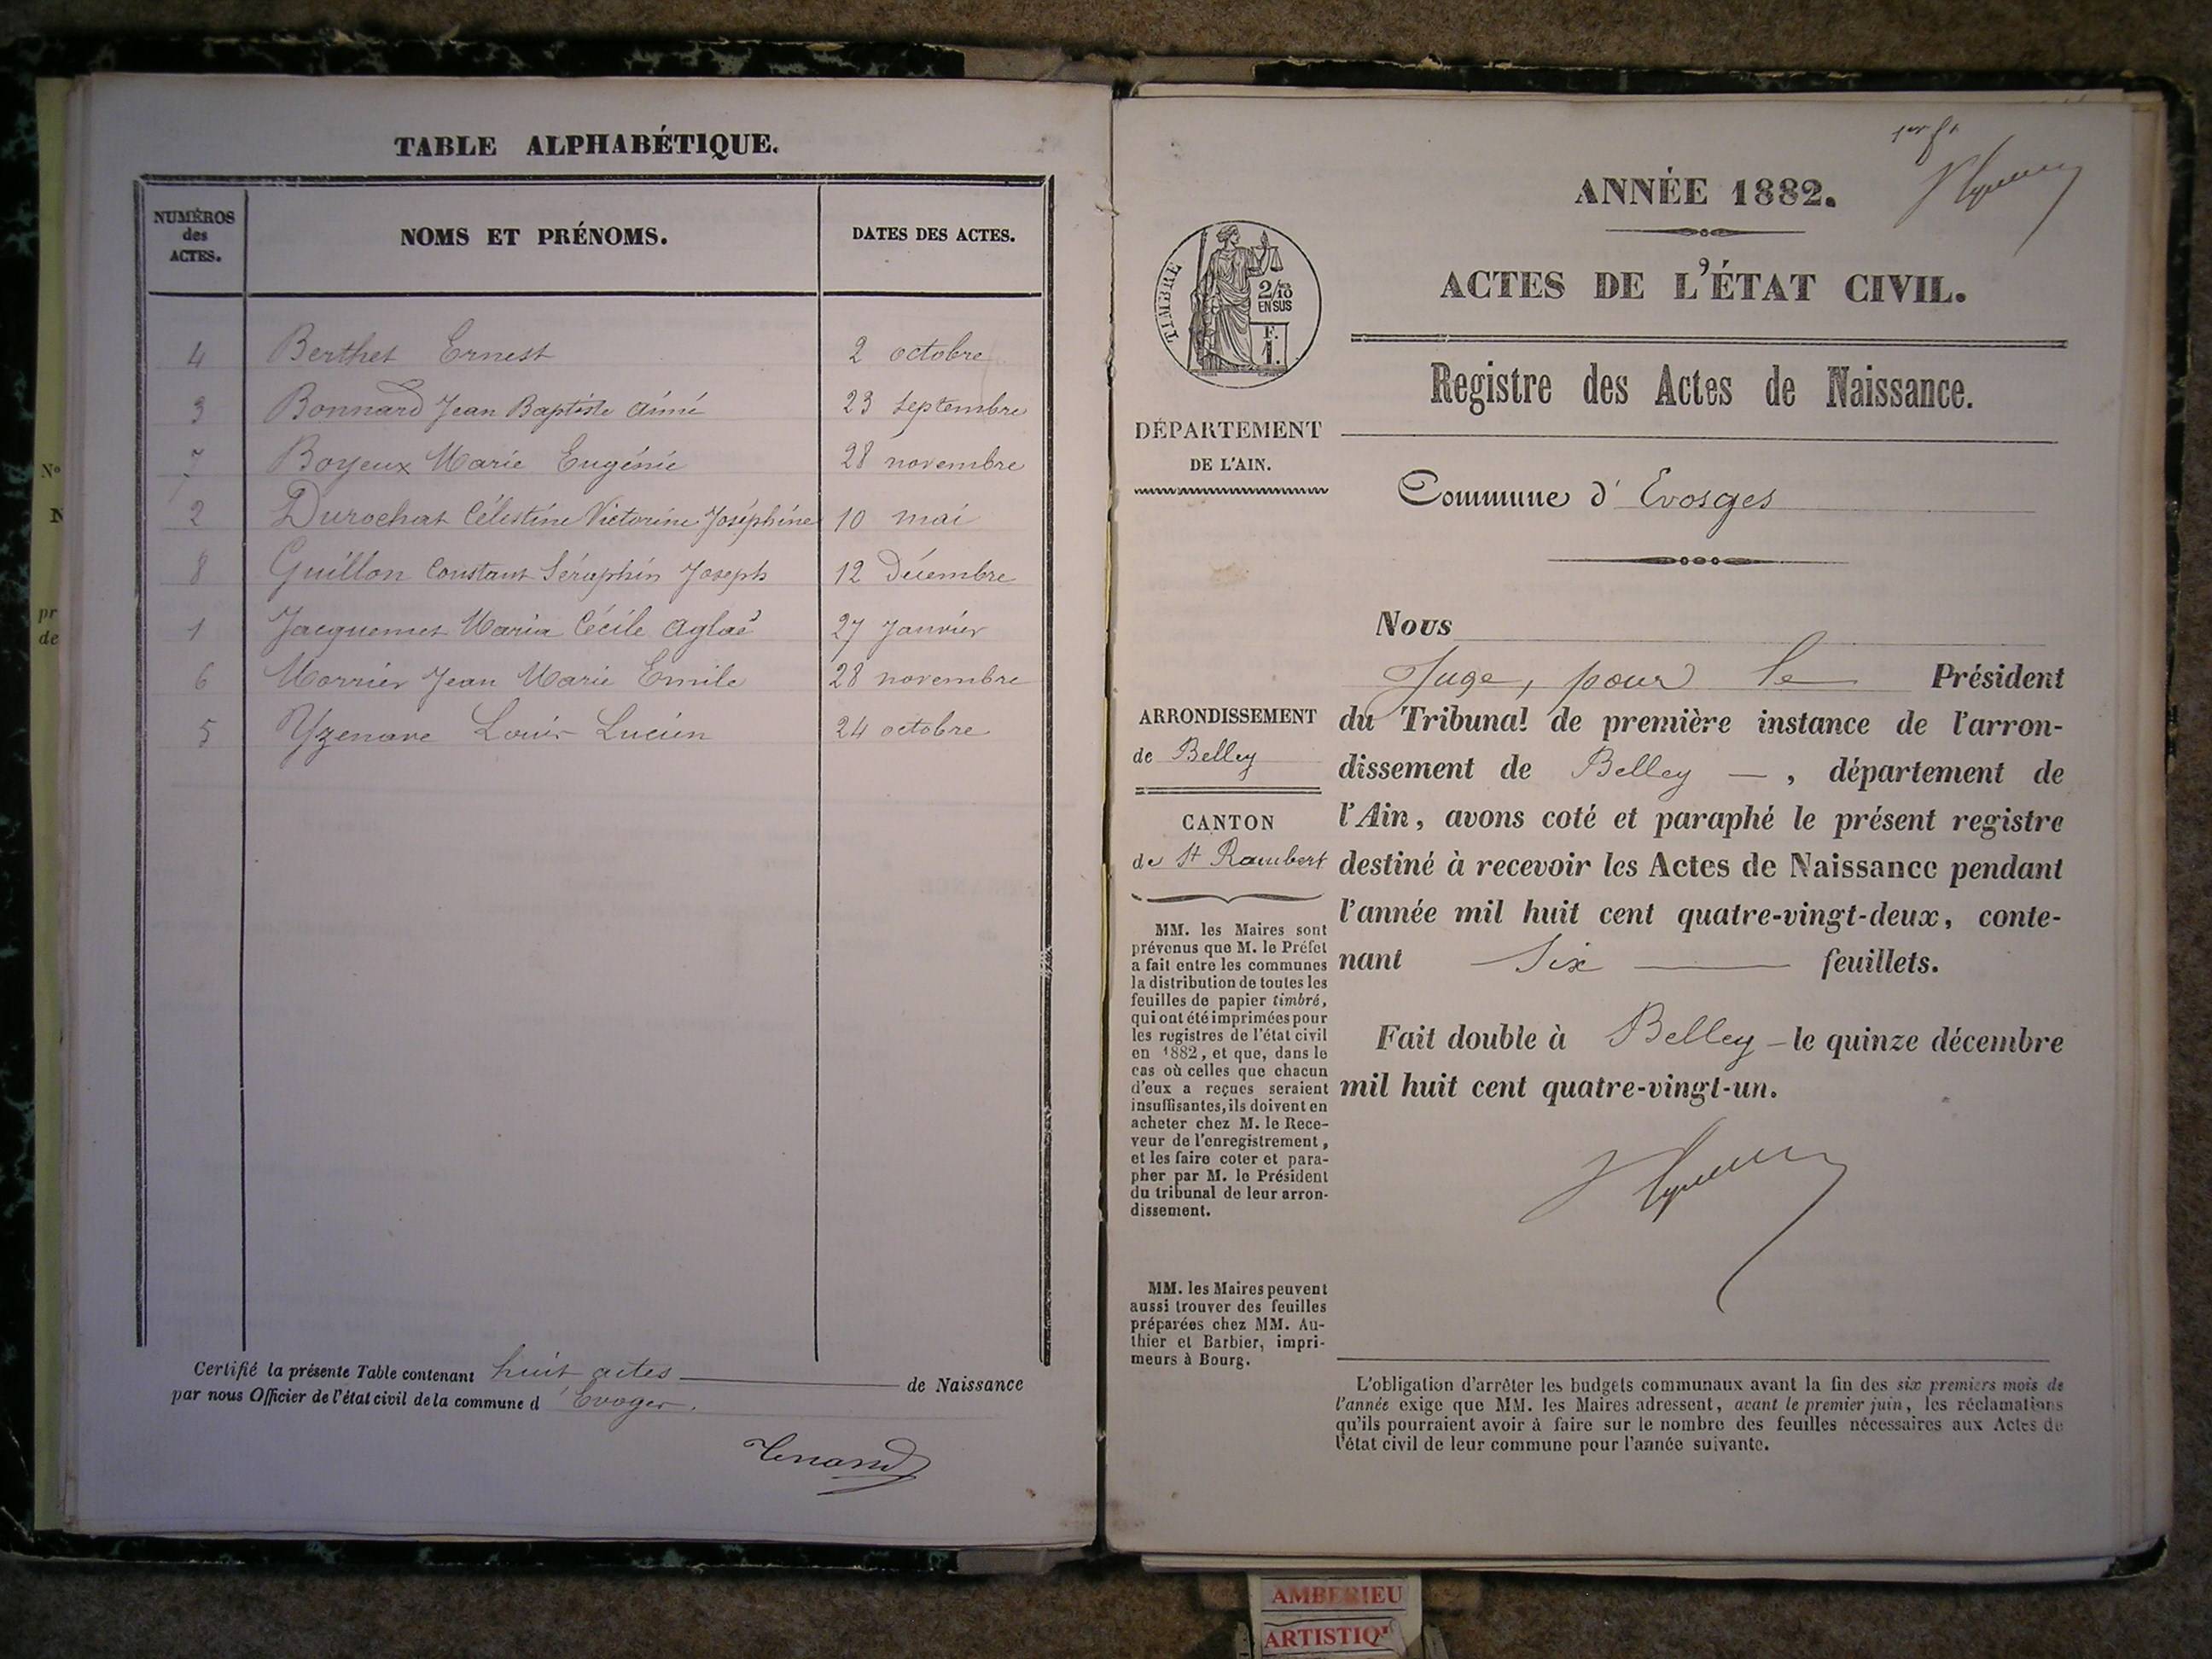 TABLE ALPHABÉTIQUE.
NUMÉROS des ACTES.
NOMS ET PRÉNOMS.
DATES DES ACTES.
4 Berthet Ernest 2 octobre
3 Bonnard Jean Baptiste Aimé 23 septembre
7 Boyeux Marie Eugénie 28 novembre
2 Durochat Célestine Victorine Joséphine 10 mai
8 Guillon Constant Séraphin Joseph 12 Décembre
1 Jacquemet Maria Cécile Aglaé 27 Janvier
6 Morrier Jean Marie Emile 28 novembre
5 Yzenave Louis Lucien 24 octobre
Certifié la présente Table contenant huit actes de Naissance
par nous Officier de l'état civil de la commune d'Evoges.
Tenand
1er ft
ANNÉE 1882.
ACTES DE L'ÉTAT CIVIL.
TIMBRE
2/10
EN SUS
F.
1.
Registre des Actes de Naissance.
DÉPARTEMENT
DE L'AIN.
Commune d' Evosges
Nous
Juge, pour le Président
du Tribunal de première instance de l'arron-
dissement de Belley —, département de
l'Ain, avons coté et paraphé le présent registre
destiné à recevoir les Actes de Naissance pendant
l'année mil huit cent quatre-vingt-deux, conte-
nant Six — feuillets.
Fait double à Belley — le quinze décembre
mil huit cent quatre-vingt-un.
ARRONDISSEMENT
de Belley
CANTON
de St Rambert
MM. les Maires sont
prévenus que M. le Préfet
a fait entre les communes
la distribution de toutes les
feuilles de papier timbré,
qui ont été imprimées pour
les registres de l'état civil
en 1882, et que, dans le
cas où celles que chacun
d'eux a reçues seraient
insuffisantes, ils doivent en
acheter chez M. le Rece-
veur de l'enregistrement,
et les faire coter et para-
pher par M. le Président
du tribunal de leur arron-
dissement.
MM. les Maires peuvent
aussi trouver des feuilles
préparées chez MM. Au-
thier et Barbier, impri-
meurs à Bourg.
L'obligation d'arrêter les budgets communaux avant la fin des six premiers mois de
l'année exige que MM. les Maires adressent, avant le premier juin, les réclamations
qu'ils pourraient avoir à faire sur le nombre des feuilles nécessaires aux Actes de
l'état civil de leur commune pour l'année suivante.
AMBERIEU
ARTISTIQ